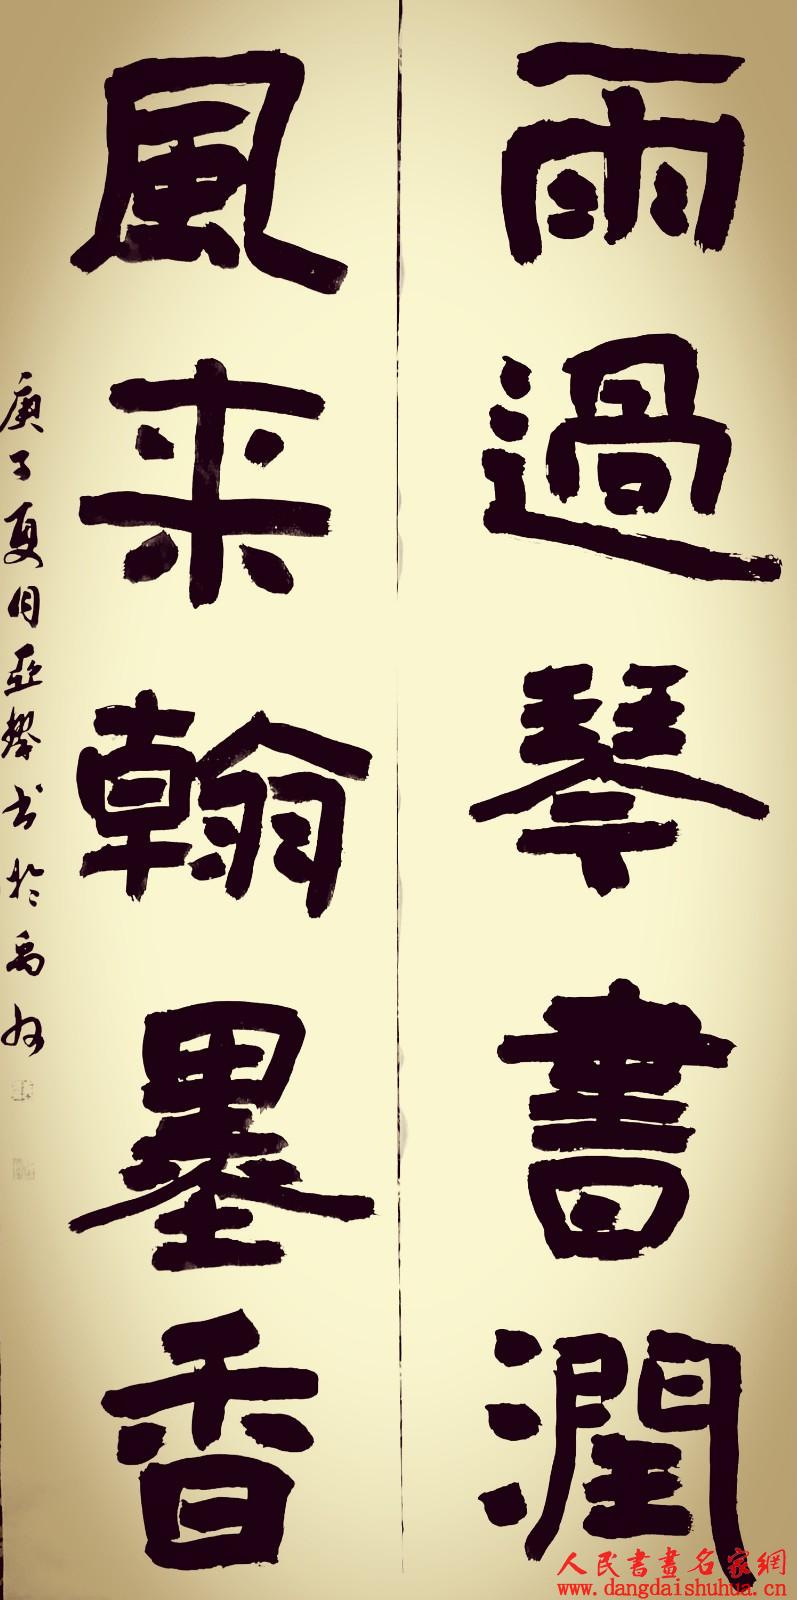 雨過琴書潤
風来翰墨香
庚子夏月亚攀书於禹州
人民書畫名家網
www.dangdaishuhua.cn